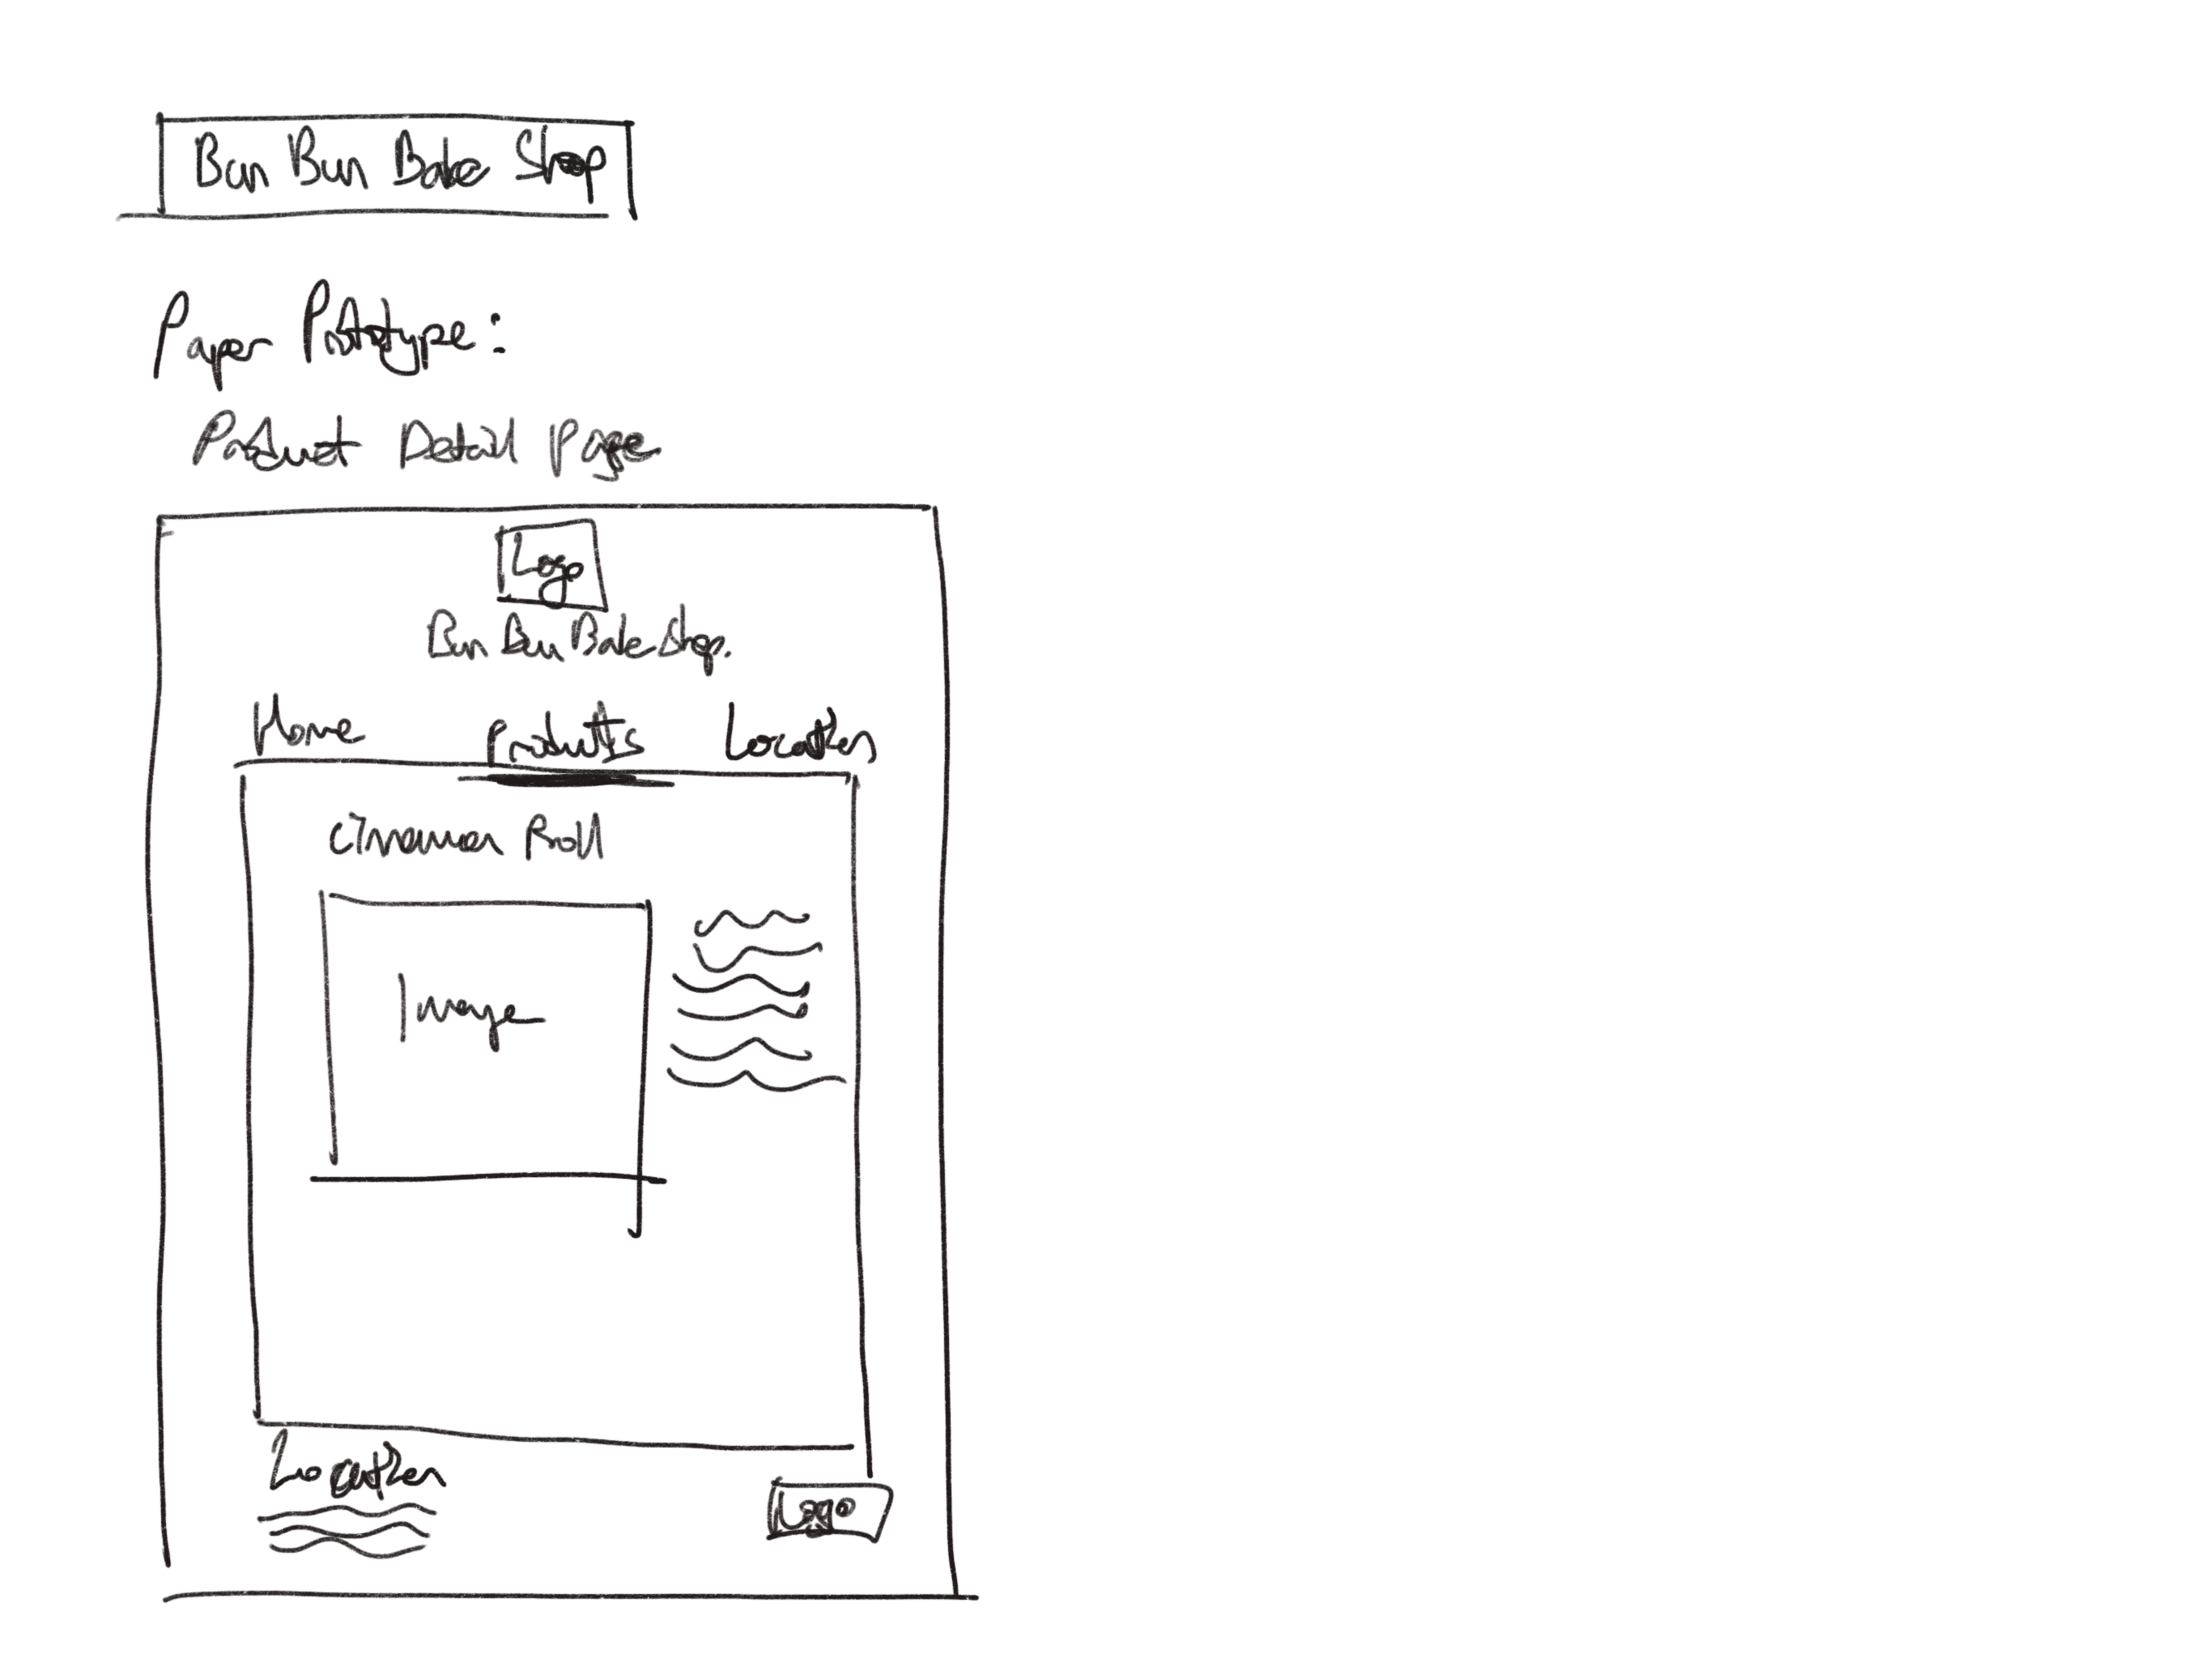 Bun Bun Bake Shop
Paper Prototype:
Product Detail Page
Logo
Bun Bun Bake Shop.
Home Products Location
Cinnamon Roll
Image
Location
Logo